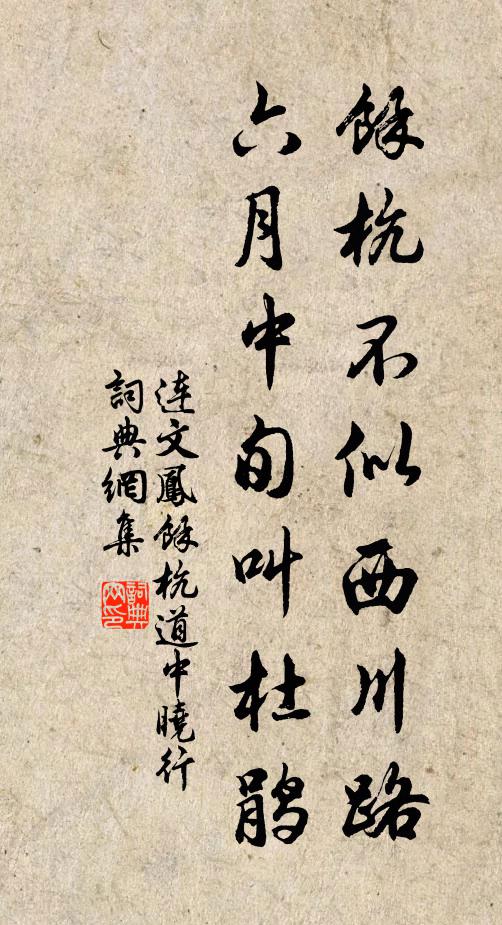 餘杭不似西川路
六月中旬叫杜鵑
連文鳳餘杭道中曉行
詞典網集
詞典網印